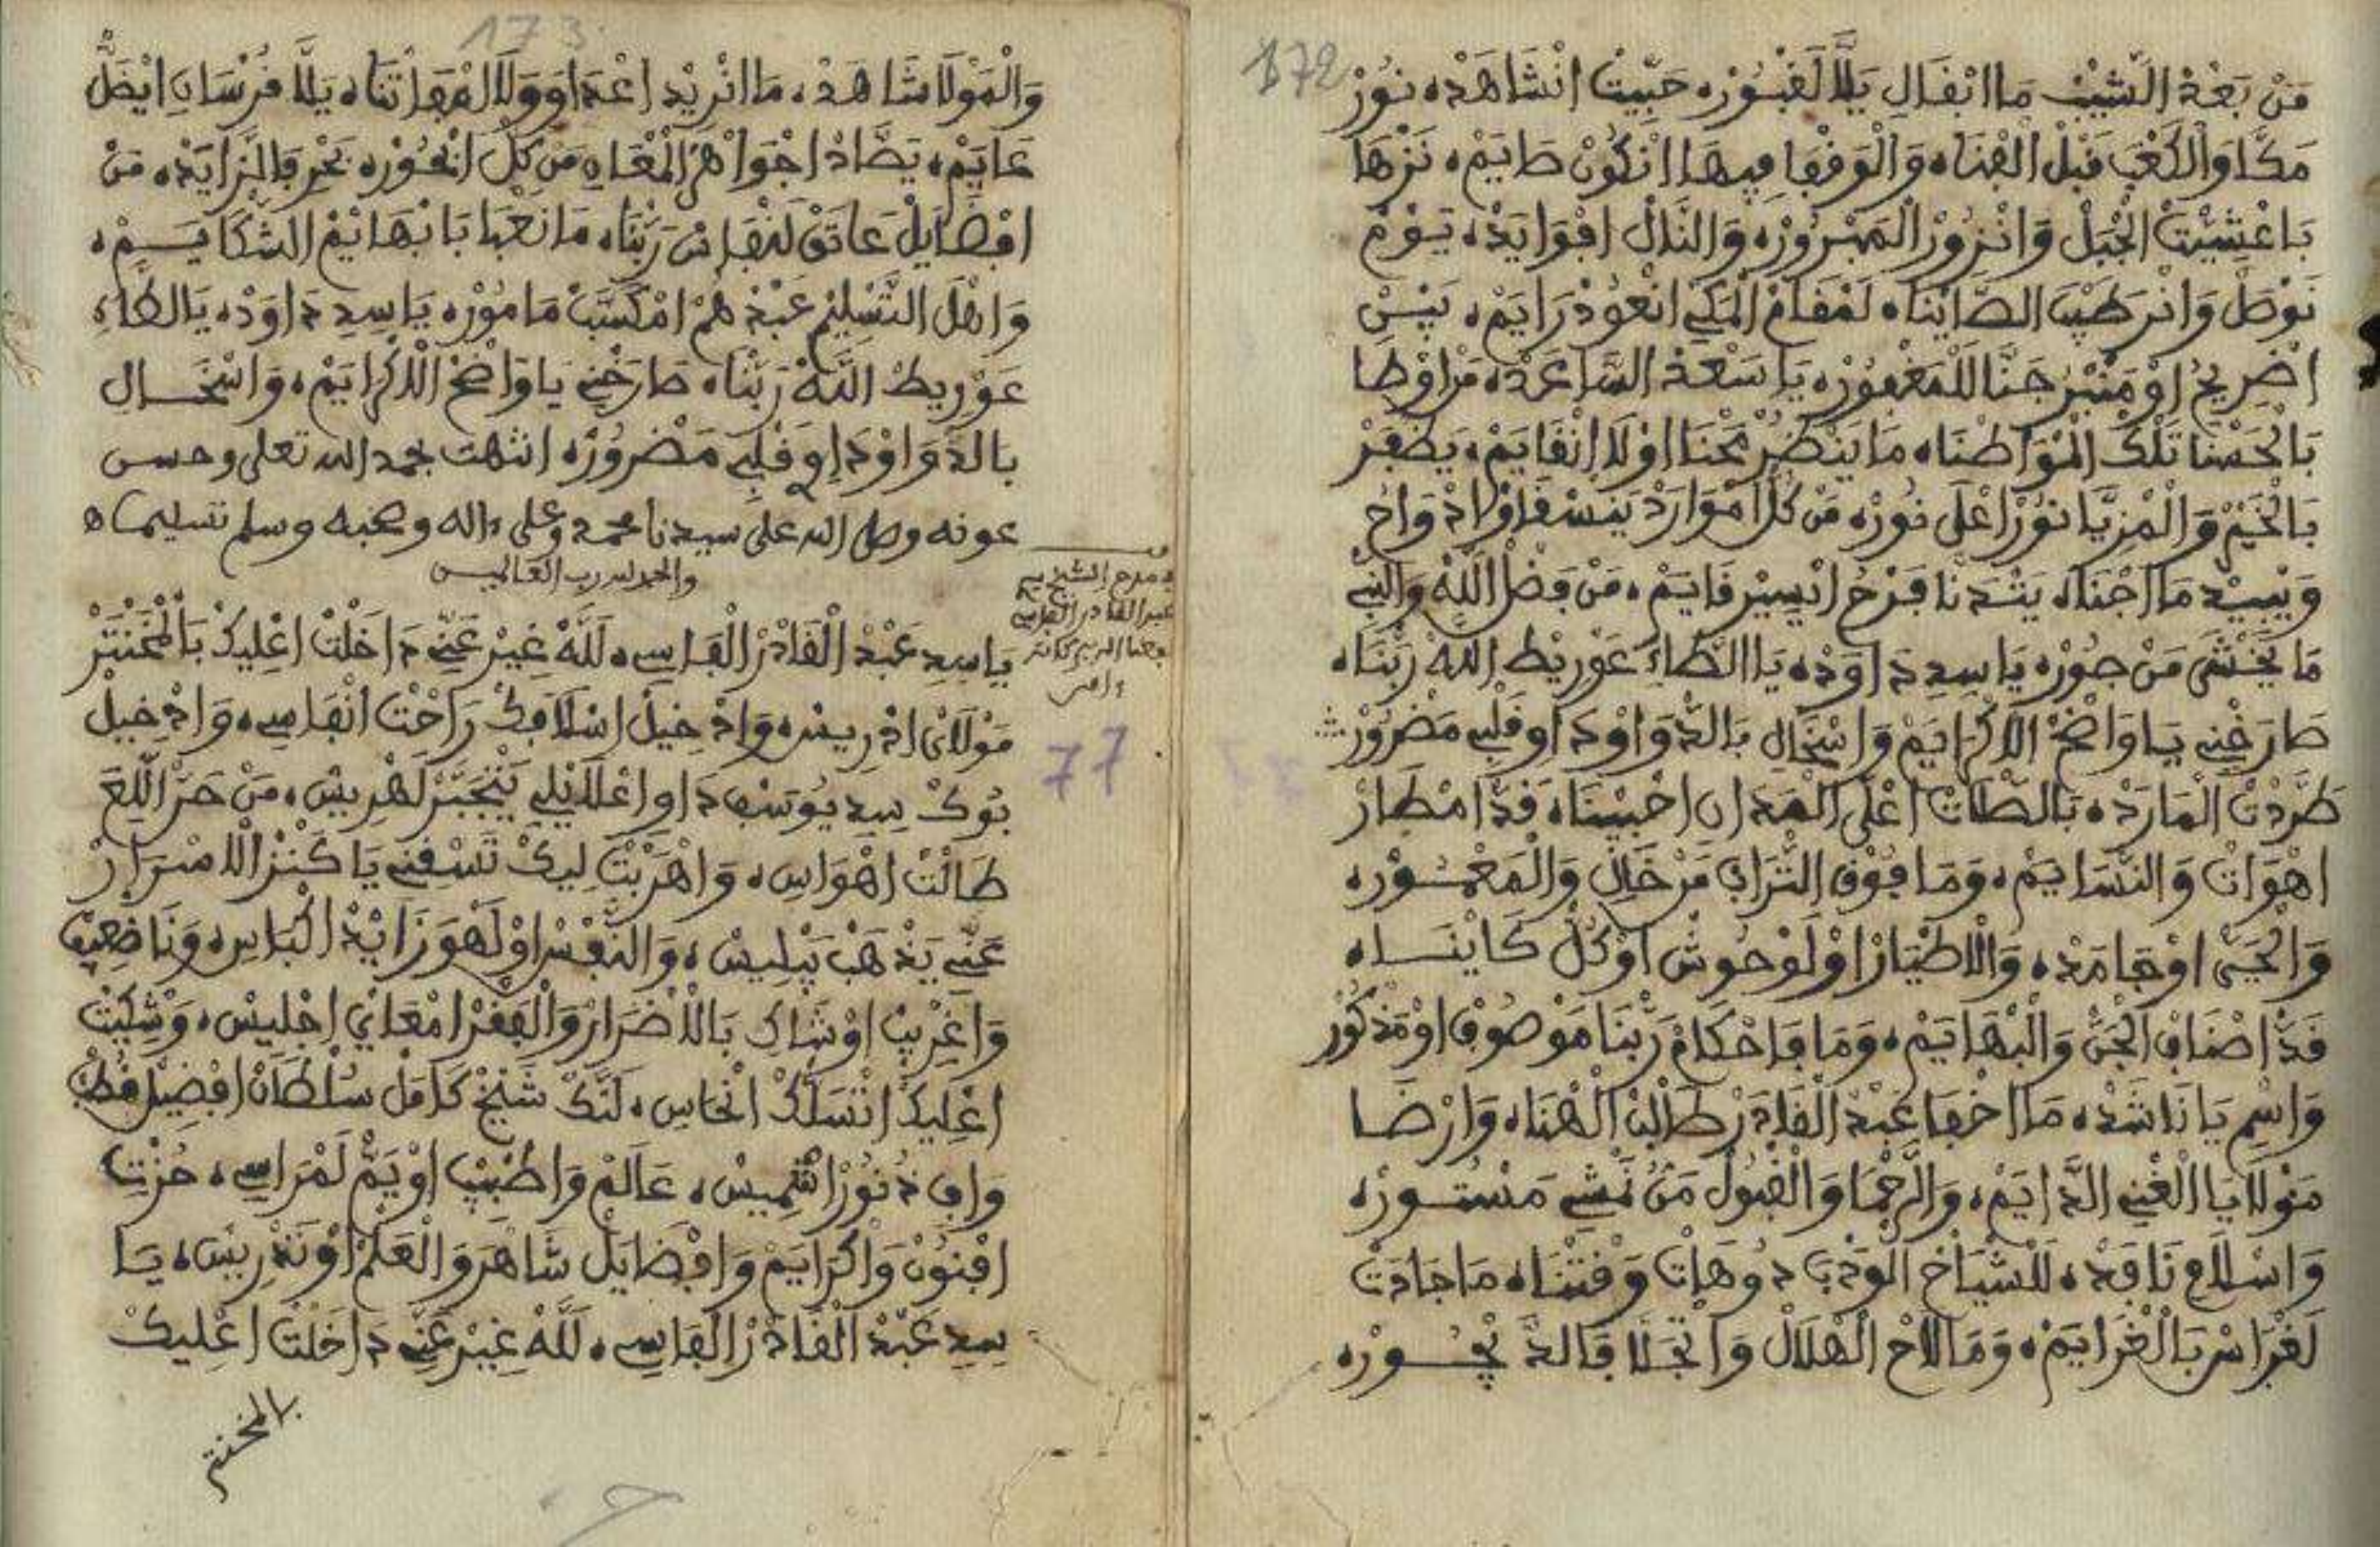 172
مَنْ بَعْدْ الشَّيْبْ مَا ابْقَالِ يَلَّا لَقْبُورْ، حَبِّيتْ انْشَاهَدْ، نُورْ
مَكَّا وَالْكَعْبَ قَبْلْ الْفْنَا، وَالْوَقْفَا فِيهَا انْكُونْ صَايَمْ، نَزْهَا
بَاعْشِيّْتْ الْجْبَلْ وَانْزُورْ الْمَبْرُورْ، وَالنَّالْ افْوَايَدْ، يَوْمْ
نَوْصَلْ وَانْرَطَّبْ الصَّايْنَا، لَمْقَامْ الْمَكِّي انْعُودْ رَايَمْ، بَيْنْ
اضْرِيحُ اوْ مَنْبَرُ جَنَّا لَلْمَغْفُورْ، يَا سَعْدْ السَّاعَدْ، مَنْ اوْطَا
بَالْحَسْنَا تَلْكْ الْمْوَاطْنَا، مَا يَنْضُرْ مَحْنَا اوْلَا انْقَايَمْ، يَظْفَرْ
بَالْخَيْرْ وَالْمْزِيَّا نُورْ اعْلَى نُورْ، مَنْ كُلّْ امْوَارَدْ يَنْسْقَاوْا ادْوَاحُ
وَيْبِيدْ مَا اجْنَا، يَشْدَنَا فَرْحُ ابْسِيرْ قَايَمْ، مَنْ فَضْلْ اللَّهْ وَالنْبِي
مَا يَخْشَى مَنْ جُورْ، يَا سِيدِ دَاوَدْ، يَا الطَّاءِ عَوْرِيطْ اللَّهْ رَبّْنَا،
صَارَخْنِي يَا وَاضَحْ الَاكْرَايَمْ وَاسْخَالِ بَالدّْوَا اوْدَاوِ قَلْبِي مَضْرُورْ
طَرَّدْتْ الْمَارَدْ، بَالصّْلَاتْ اعْلَى الْهَدَانِ احْبِيبْنَا، قَدّْ امْطَارْ
اهْوَاتْ وَالنّْسَايَمْ، وَمَا فُوقْ التّْرَابْ مَنْ خَالِ وَالْمَعْمُورْ،
وَالْحَيّْ اوْجَامَدْ، وَالَاطْيَارْ اوْلَوْحُوشْ اوْكُلّْ كَايْنَا،
قَدّْ اصْنَافْ الْجَنّْ وَالْبْهَايَمْ، وَمَا فَاحْكَامْ رَبّْنَا مَوْصُوفْ اوْمَذْكُورْ
وَاسْمِ يَا نَاشَدْ، مَا اخْفَا عَبْدْ الْقَادَرْ طَالْبْ الْهْنَا، وَارْضَا
مَوْلَا يَا الْغْنِي الدَّايَمْ، وَالرَّحْمَا وَالْقْبُولْ مَنْ نَمْشِي مَسْتُورْ،
وَاسْلَامِ نَافَدْ، لَلَشْيَاخْ الْوَدْبْ دُوهَاتْ وَقْتْنَا، مَا جَادَتْ
لَغْرَاسْ بَالْغْرَايَمْ، وَمَا لَاحْ الْهْلَالْ وَانْجْلَا فَالدّْيجُورْ،
173
وَالْمَوْلَا شَاهَدْ، مَا انْرِيدْ اعْدَاوَ وَلَا الْمْفَاتْنَا، يَلَّا فُرْسَانِ ايْضَلّْ
عَايَمْ، يَصَّادْ اجْوَاهَرْ الْمْعَانِ مَنْ كُلّْ ابْحُورْ، بَحْرِ فَالزَّايَدْ، مَنْ
افْضَايَلْ عَاتَقْ لَنْفَاسْ رَبّْنَا، مَا نَعْبَا بَابْهَايَمْ الشّْكَايَمْ،
وَاهْلْ التَّسْلِيمْ عَبْدْهُمْ امْكَسَّبْ مَامُورْ، يَا سِيدِ دَاوَدْ، يَا الطَّاءِ
عَوْرِيطْ اللَّهْ رَبّْنَا، صَارَخْنِي يَا وَاضَحْ الَاكْرَايَمْ، وَاسْخَالِ
بَالدّْوَا اوْدَاوِ قَلْبِي مَضْرُورْ، انتهت بحمد الله تعلى وحسن
عونه وصلى الله على سيدنا محمد وعلى ءاله وصحبه وسلم تسليما ه
والحمد لله رب العالمين
مدح الشيخ سيدي
عبد القادر الفاسي
نفعنا الله ببركاته
ءامين
77
يَا سِيدِ عَبْدْ الْقَادَرْ الْفَاسِي، لَلَّهْ غِيرْ عَنِّي دَاخَلْتْ اعْلِيكْ بَالْمْخَنْتَرْ
مَوْلَايْ ادْرِيسْ، وَادْخِيلْ اسْلَافَكْ رَاحْتْ انْفَاسِي، وَادْخِيلْ
بُوكْ سِيدِ يُوسَفْ دَاوِ اعْلَايْلِي يَنْجَبَّرْ لَهْرِيسْ، مَنْ حَرّْ اللِّيعَ
طَالَتْ اهْوَاسِ، وَاهْرَبْتْ لِيكْ تَسْقِنِي يَا كَنْزْ الَاسْرَارْ
عَنِّي يَذْهَبْ بَبْلِيسْ، وَالنَّفْسْ اوْلَهْوَ زَايْدْ اكْبَاسِ، وَنَا ضْعِيفْ
وَاغْرِيبْ اوْشَاكِ بَالَاضْرَارْ وَالْفَقْرْ امْعَايْ اجْلِيسْ، وَشْكِيتْ
اعْلِيكْ انْسَلَّكْ انْحَاسِ، لَنَّكْ شَيْخْ كَامَلْ سُلْطَانْ افْضِيلْ قُطْبْ
وَافِ دْنُورْ اشْمِيسْ، عَالَمْ وَاطْبِيبْ اوْيَمّْ لَمْرَاسِي، حُزْتِ
افْنُونْ وَاكْرَايَمْ وَافْضَايَلْ شَاهَرْ وَالْعَلْمْ اوْتَدْرِيسْ، يَا
سِيدِ عَبْدْ الْقَادَرْ الْفَاسِي، لَلَّهْ غِيرْ عَنِّي دَاخَلْتْ اعْلِيكْ
بالمخنتر